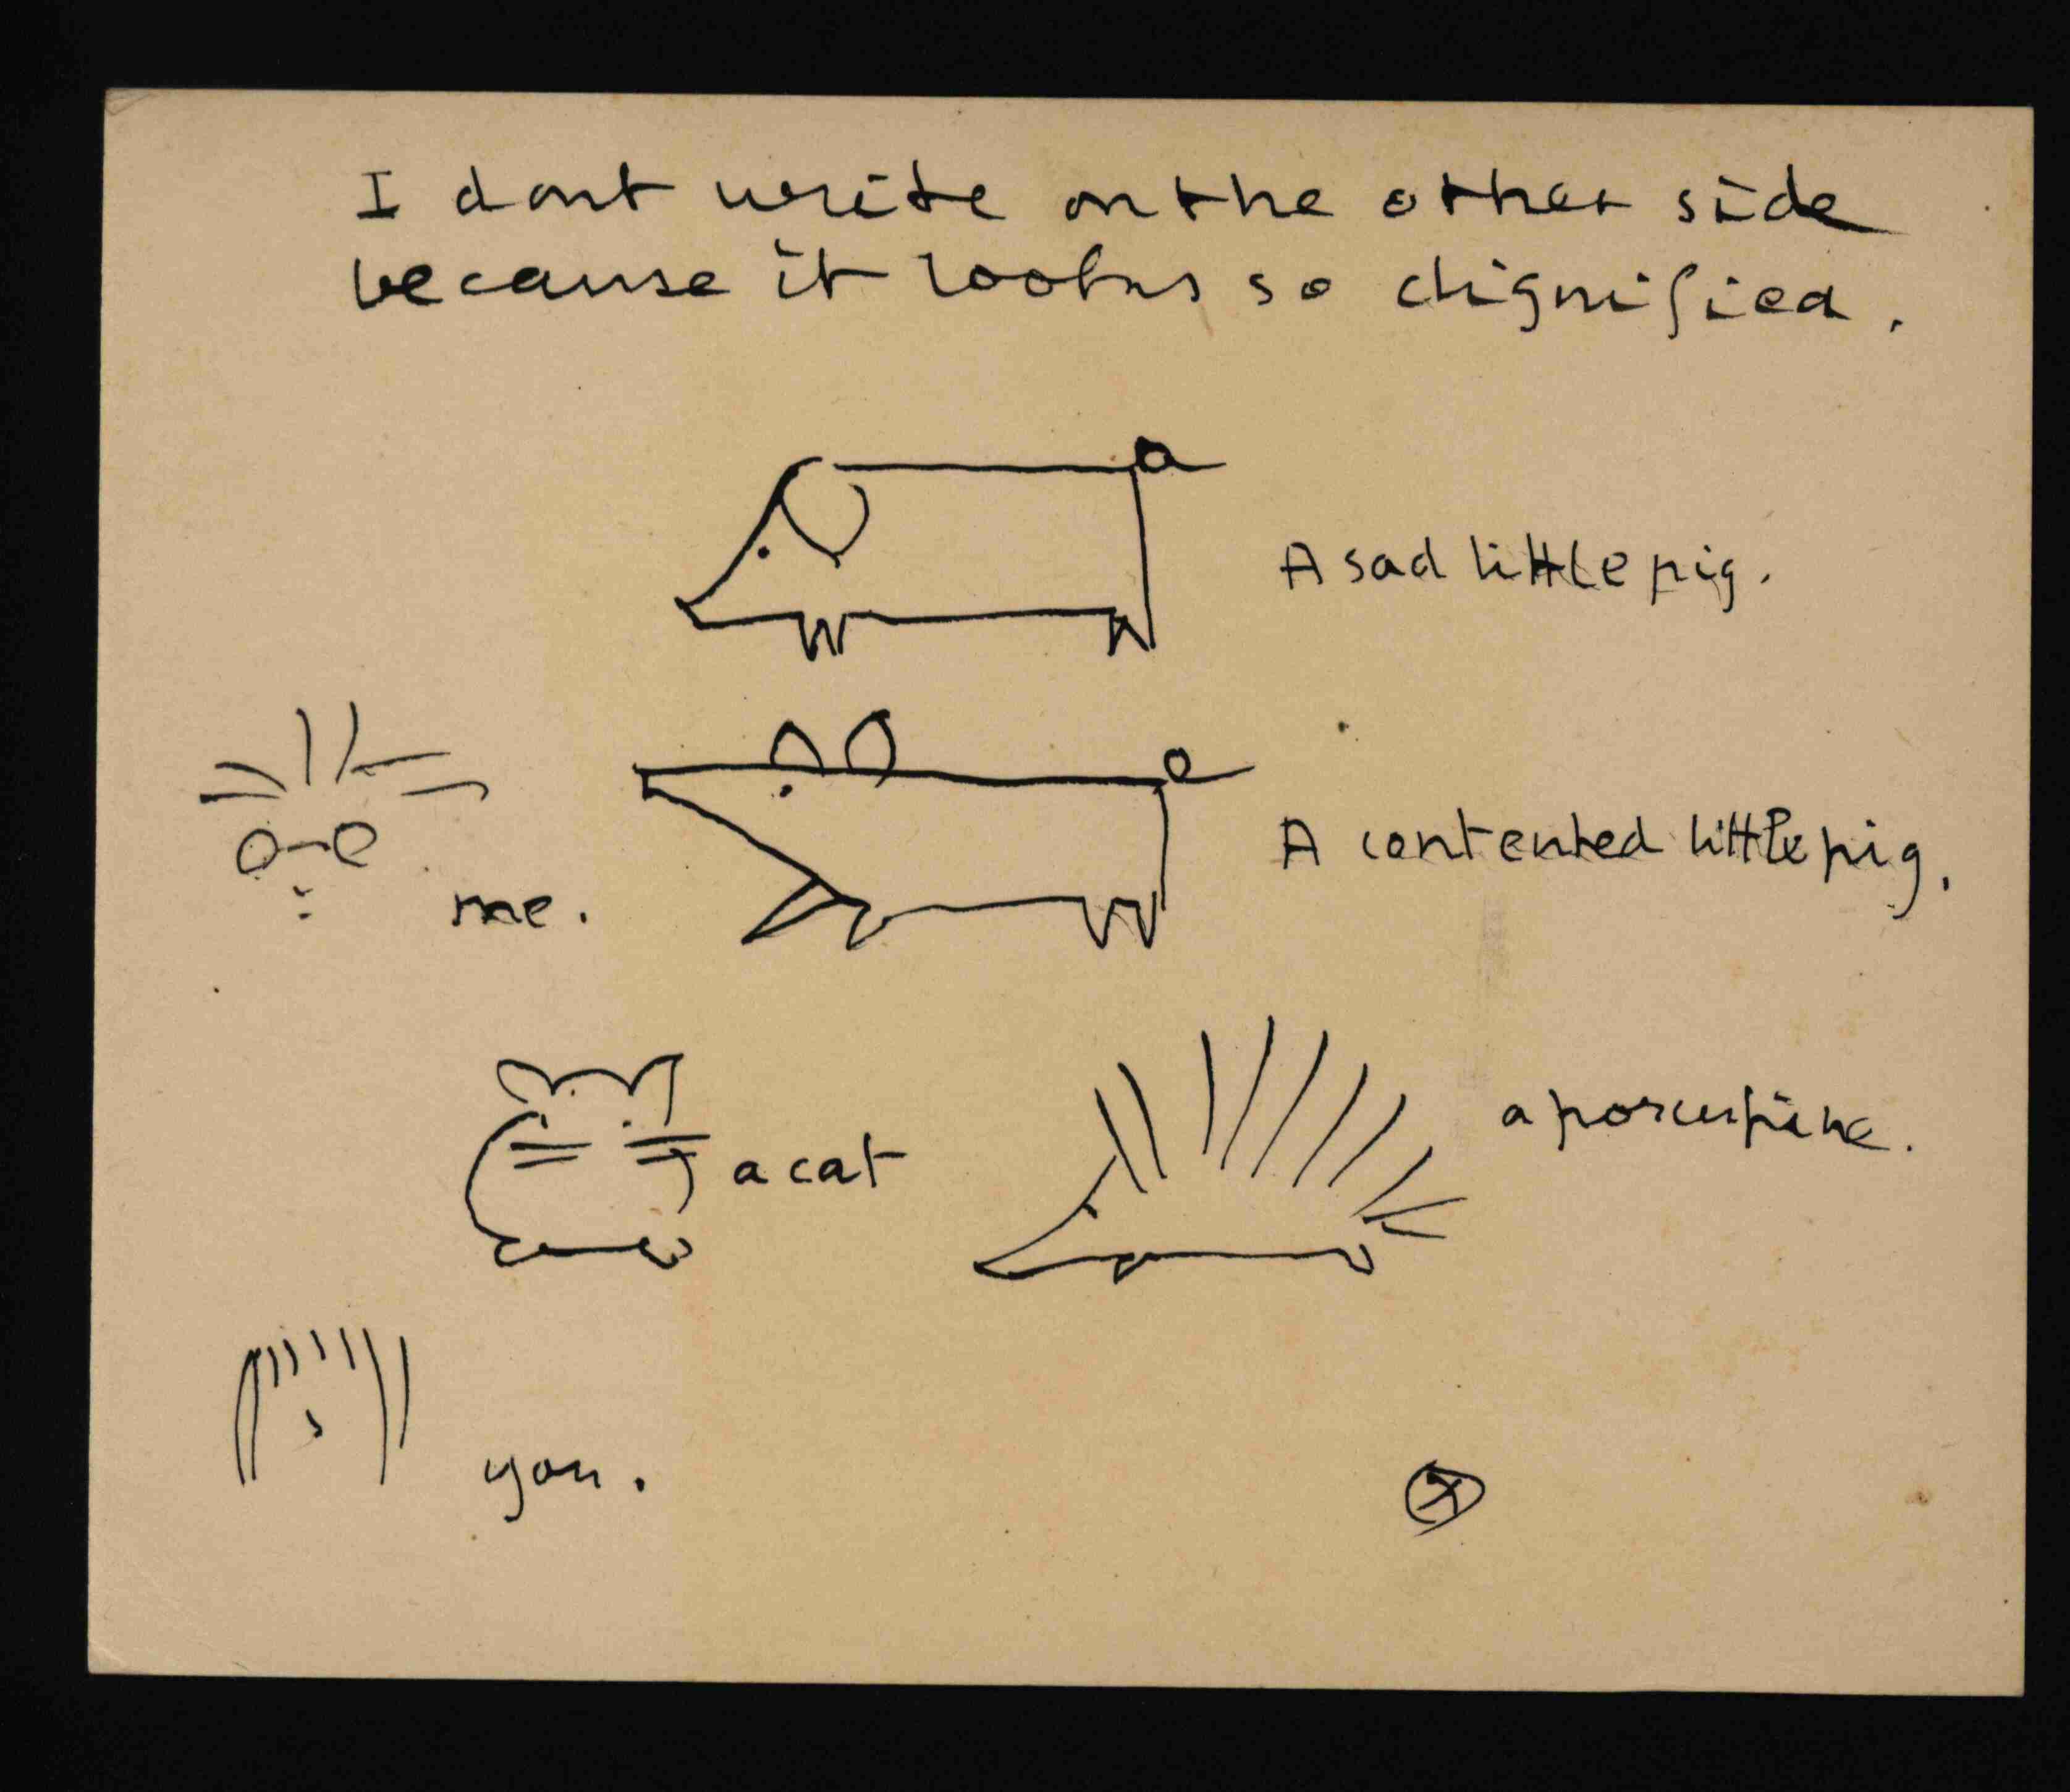 I dont write on the other side
because it looks so dignified.
A sad little pig.
me.
A contented little pig.
a cat
a porcupine.
you.